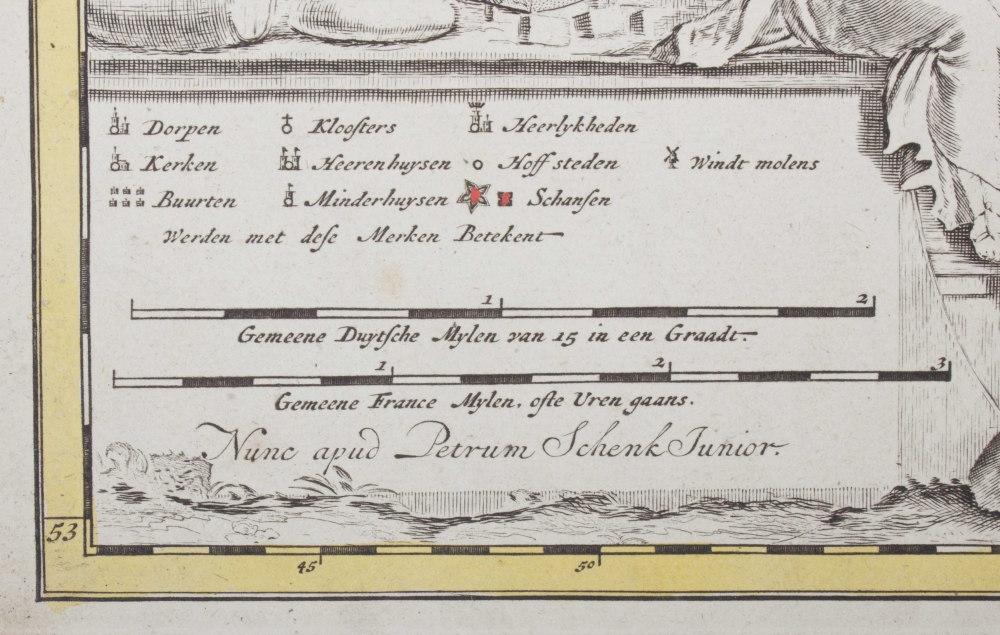 Dorpen Kloosters Heerlykheden
Kerken Heerenhuysen Hoff steden Windt molens
Buurten Minderhuysen Schansen
Werden met dese Merken Betekent
1 2
Gemeene Duytsche Mylen van 15 in een Graadt.
1 2 3
Gemeene France Mylen, ofte Uren gaans.
Nunc apud Petrum Schenk Junior.
53
45 50